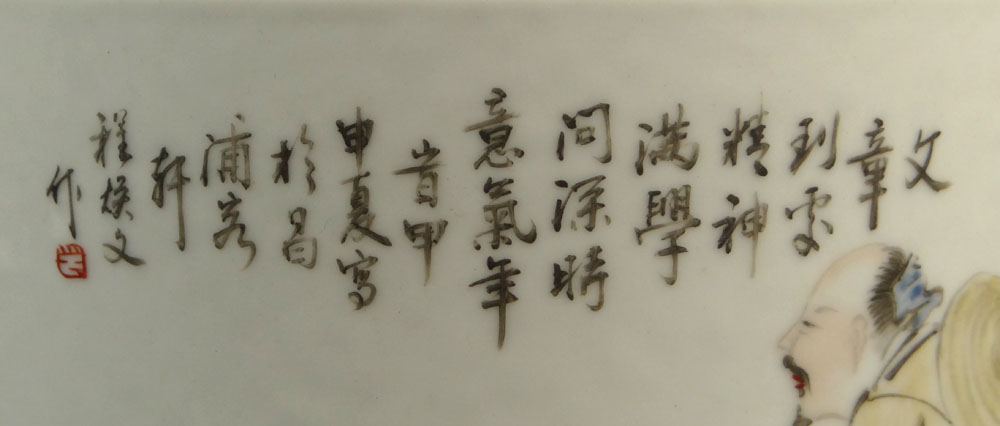 文
章
到處
精神
滿學
問深時
意氣年
峕甲
申夏寫
於昌
浦客
軒
程焕文
作